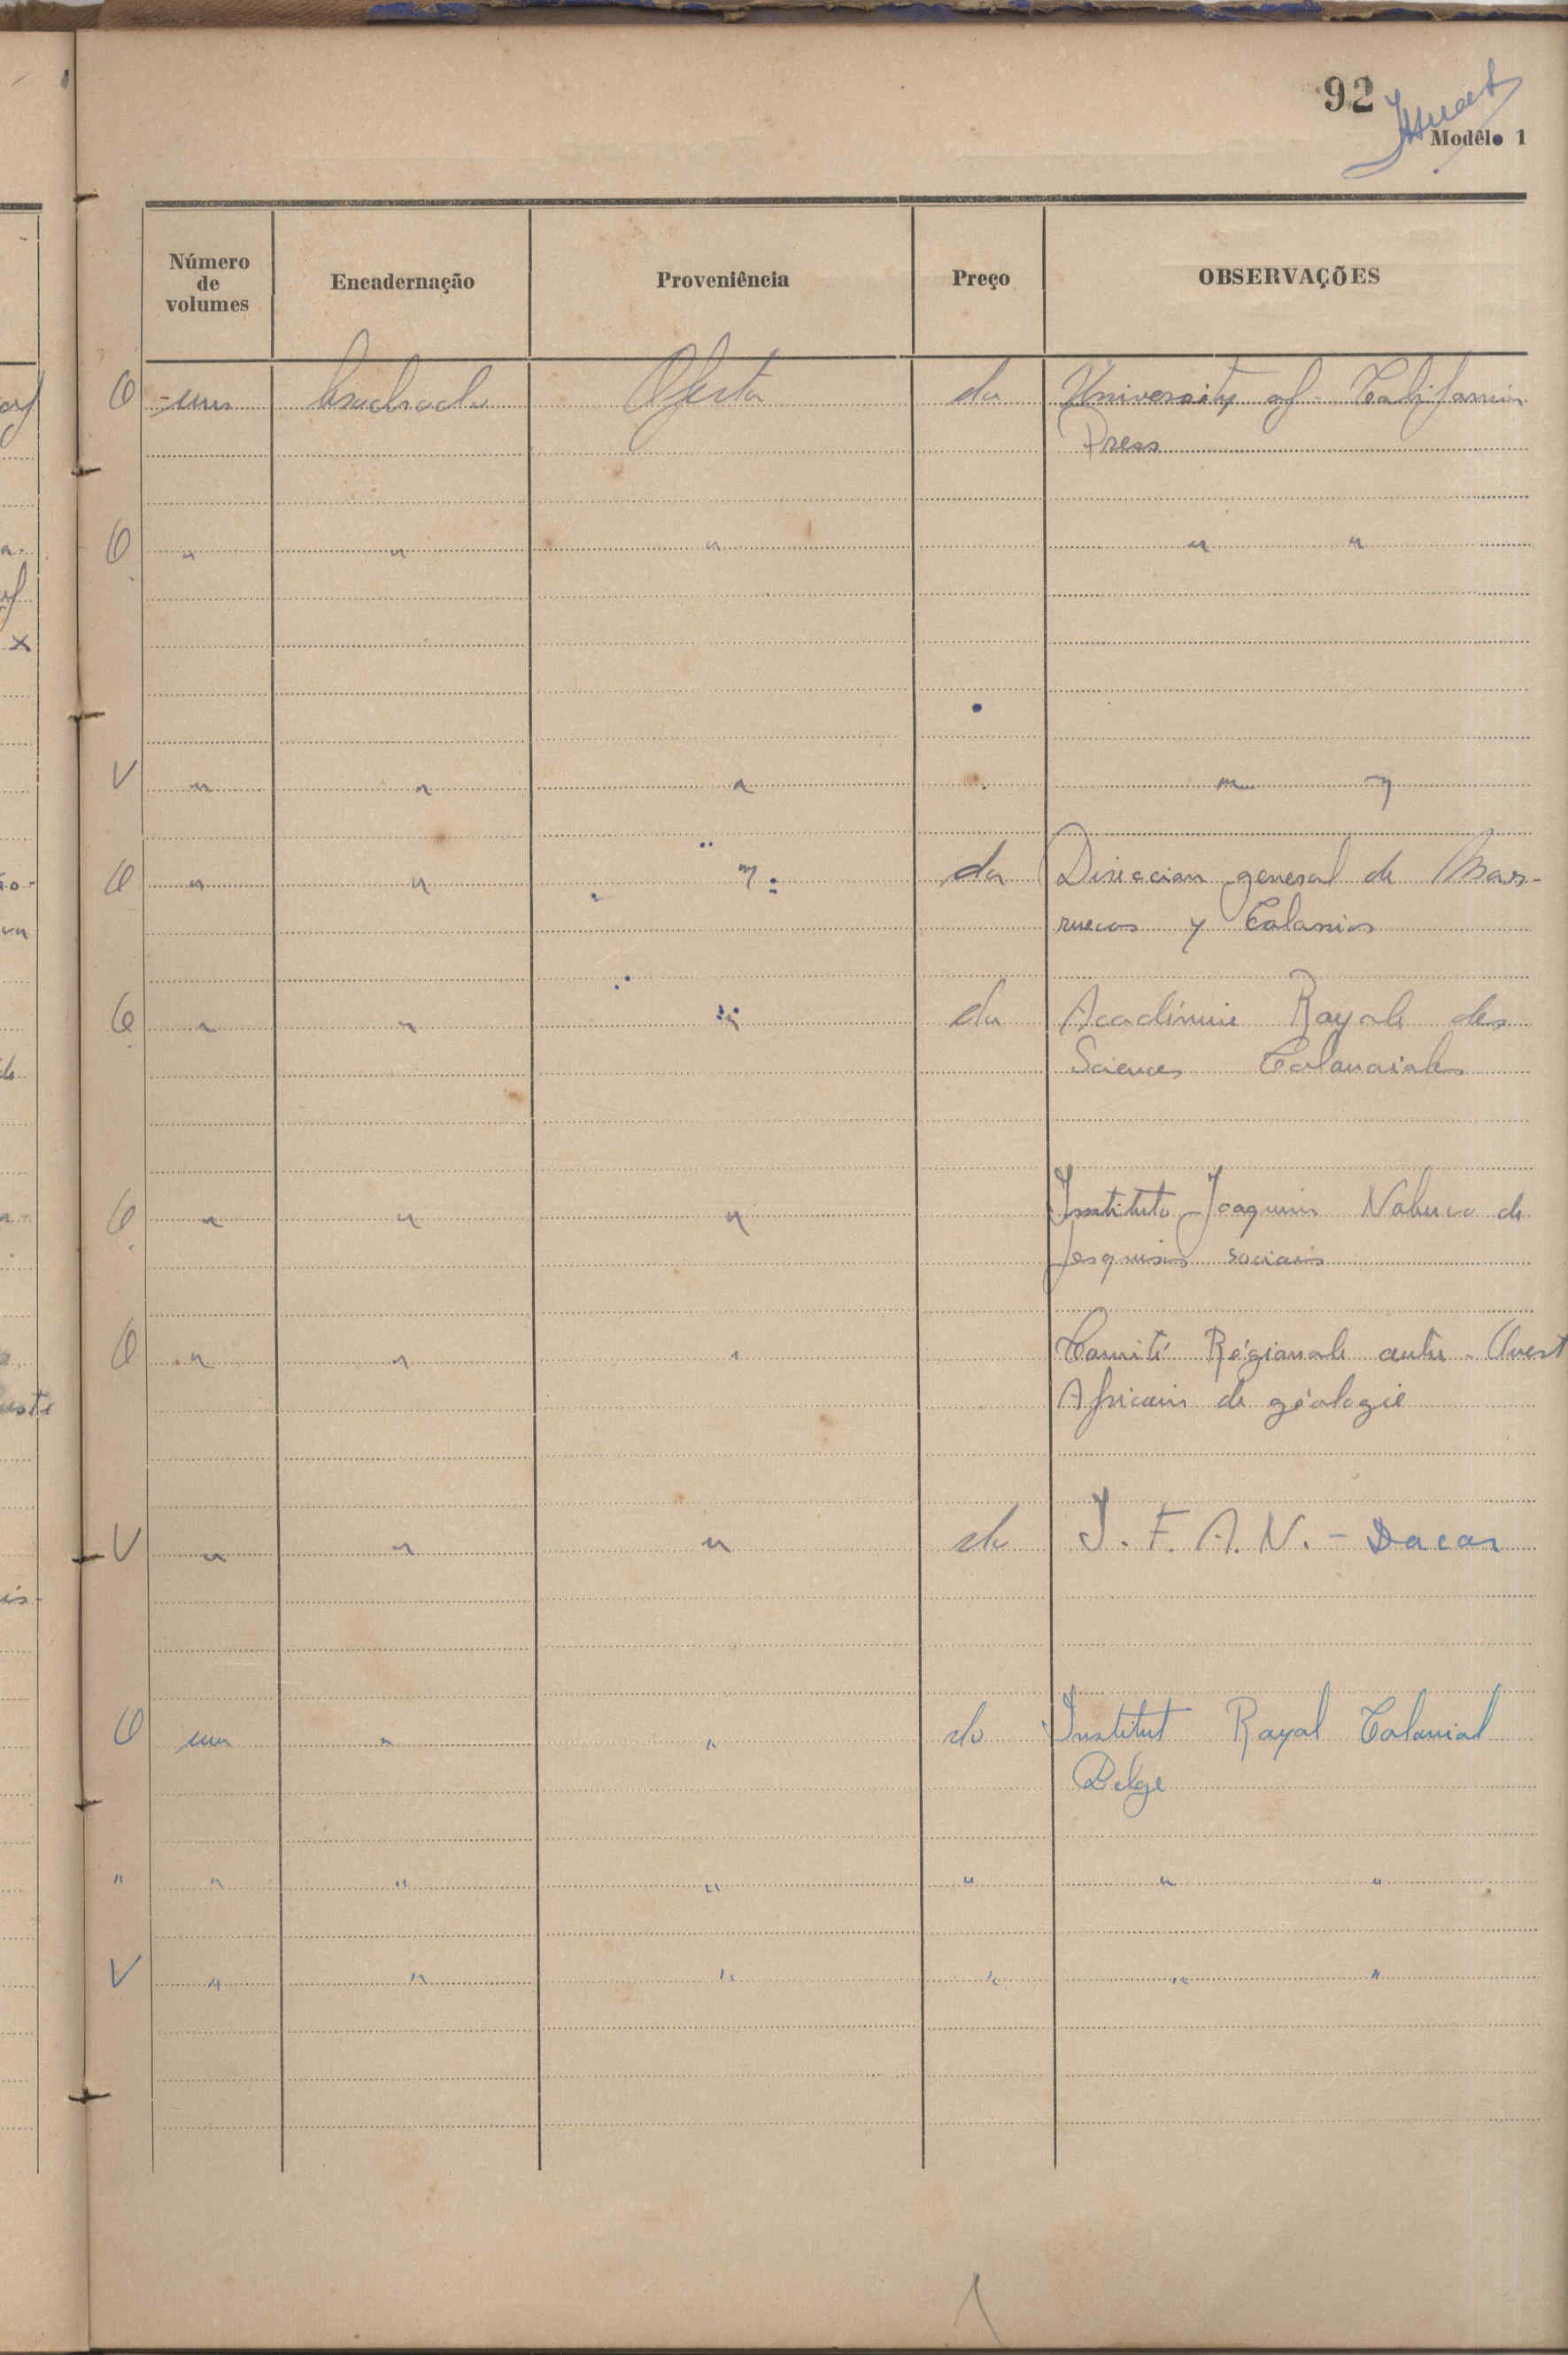 92
Modêlo 1
Número de volumes Encadernação Proveniência Preço OBSERVAÇÕES
O um brochado Oferta da University of California
Press
O " " " " "
V " " " " "
O " " " da Direccion general de Mar-
ruecos y Colonias
O " " " da Académie Royale des
Sciences Coloniales
O " " " Instituto Joaquim Nabuco de
Pesquisas sociais
O " " " Comité Régionale Ouest
Africain de géologie
V " " " do I.F.A.N. - Dacar
O um " " do Institut Royal Colonial
Belge
" " " " " " "
V " " " " " "